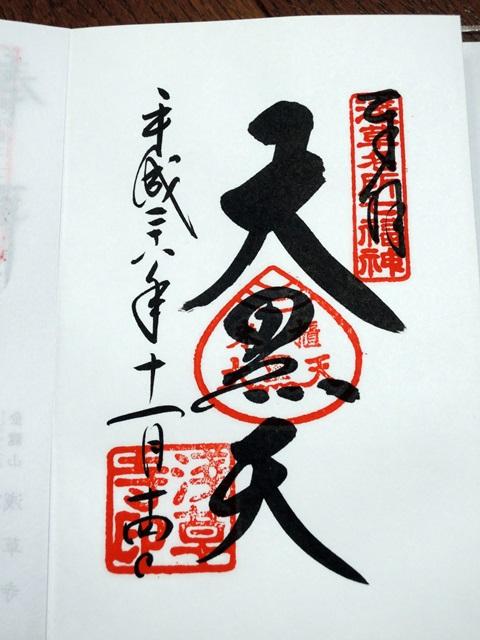 奉拝
浅草名所七福神
大黒天
浅草寺印
平成二八年十一月十四日
金龍山 浅草寺